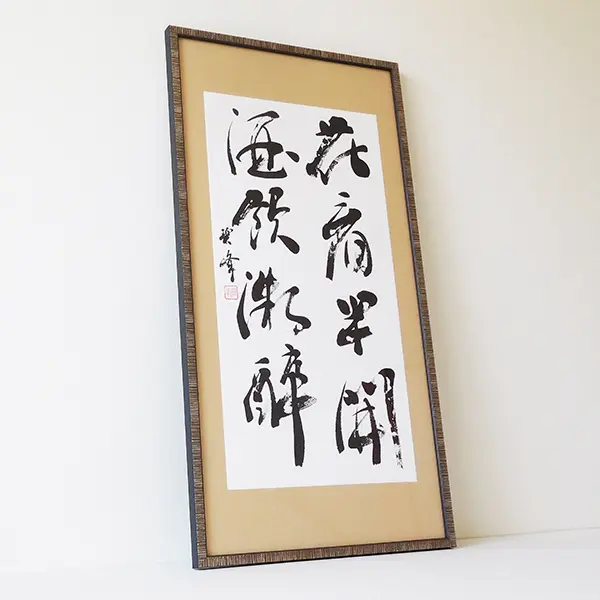 花看半開
酒飲微酔